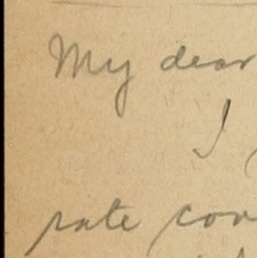 My dear
I
rate con